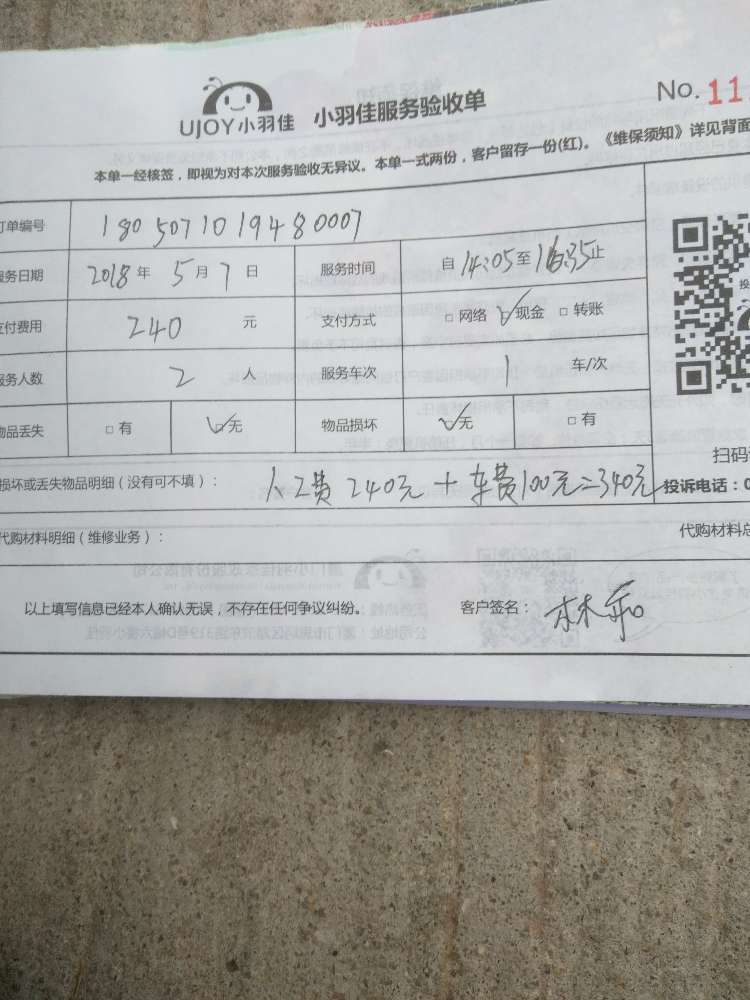 UJOY小羽佳 小羽佳服务验收单 No. 11
本单一经核签，即视为对本次服务验收无异议。本单一式两份，客户留存一份(红)。《维保须知》详见背面
订单编号 1805071019480007
服务日期 2018 年 5 月 7 日 服务时间 自 14:05 至 16:35 止
支付费用 240 元 支付方式 □ 网络 ☑ 现金 □ 转账
服务人数 2 人 服务车次 1 车/次
物品丢失 □ 有 ☑ 无 物品损坏 ☑ 无 □ 有
扫码
损坏或丢失物品明细（没有可不填）： 人工费 240元 + 车费100元=340元 投诉电话：0
代购材料明细（维修业务）： 代购材料总
以上填写信息已经本人确认无误，不存在任何争议纠纷。 客户签名：